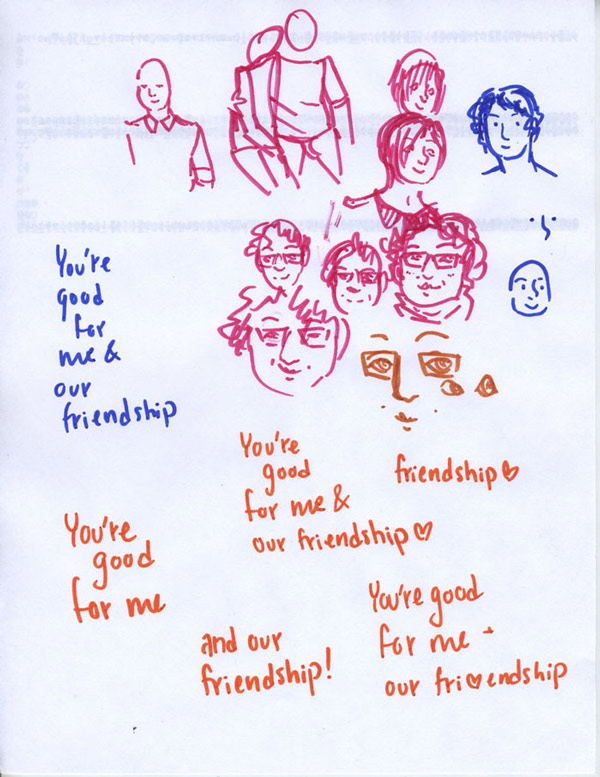 You're
good
for
me &
our
friendship
You're
good
for me &
our friendship ♡
friendship ♡
You're
good
for me
and our
friendship!
You're good
for me +
our fri♡endship